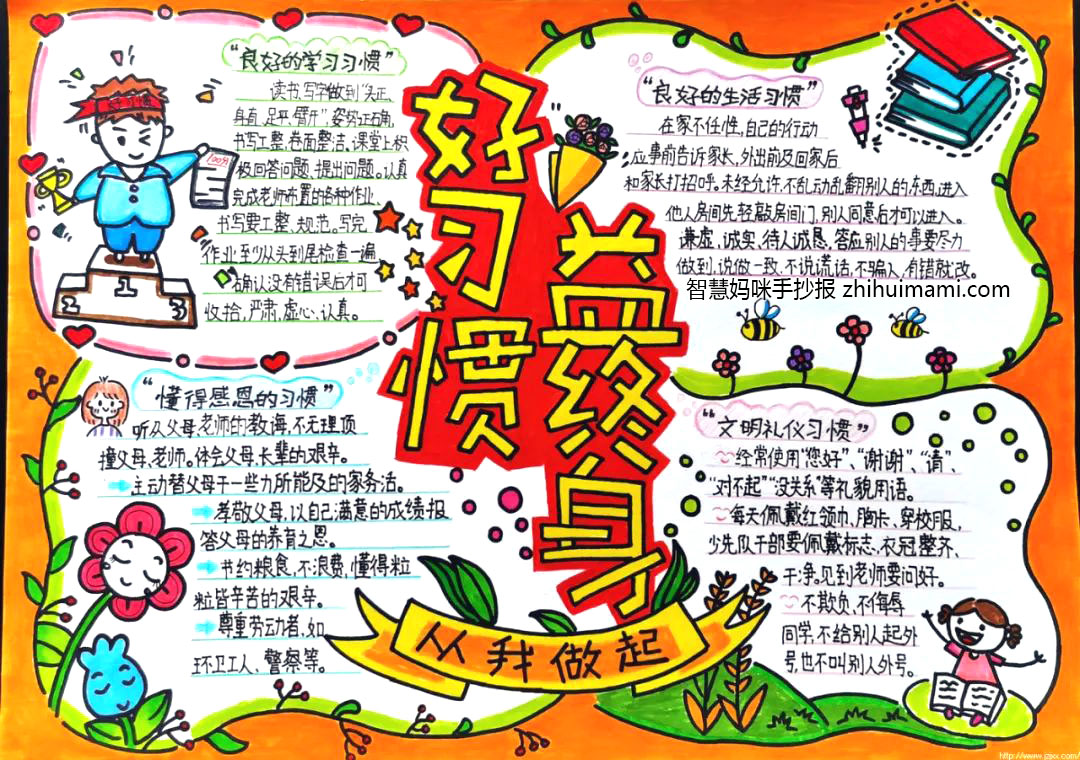 好习惯
益终身
从我做起
“良好的学习习惯”
读书、写字做到“头正、
身直、足平、臂开”,姿势正确,
书写工整,卷面整洁,课堂上积
极回答问题,提出问题。认真
完成老师布置的各种作业、
书写要工整、规范。写完
作业至少从头到尾检查一遍
确认没有错误后才可
收拾,严肃,虚心、认真。
好习惯
100分
1
2
3
“良好的生活习惯”
在家不任性,自己的行动
应事前告诉家长,外出前及回家后
和家长打招呼。未经允许,不乱动乱翻别人的东西,进入
他人房间先轻敲房间门,别人同意后才可以进入。
谦虚,诚实,待人诚恳,答应别人的事要尽力
做到,说做一致,不说谎话,不骗人,有错就改。
智慧妈咪手抄报 zhihuimami.com
“懂得感恩的习惯”
听从父母,老师的教诲,不无理顶
撞父母、老师。体会父母,长辈的艰辛。
主动替父母干一些力所能及的家务活。
孝敬父母,以自己满意的成绩报
答父母的养育之恩。
节约粮食,不浪费,懂得粒
粒皆辛苦的艰辛。
尊重劳动者,如
环卫工人、警察等。
“文明礼仪习惯”
经常使用“您好”、“谢谢”、“请”、
“对不起”“没关系”等礼貌用语。
每天佩戴红领巾,胸卡、穿校服,
少先队干部要佩戴标志、衣冠整齐、
干净。见到老师要问好。
不欺负,不侮辱
同学,不给别人起外
号,也不叫别人外号。